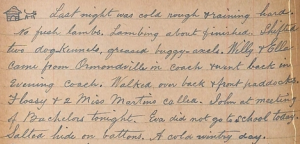 Last night was cold rough & raining hard.
No fresh lambs. Lambing about finished. Shifted
two dog kennels, greased buggy axels. Willy & Ella
came from Ormondville in coach & went back in
evening coach. Walked over back & front paddocks.
Flossy & 2 Miss Martins called. John at meeting
of Bachelors tonight. Eva did not go to school today.
Salted hide on battons. A cold wintry day.